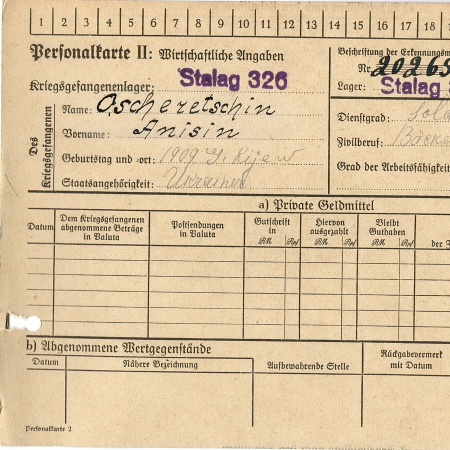 1 2 3 4 5 6 7 8 9 10 11 12 13 14 15 16 17 18
Personalkarte II: Wirtschaftliche Angaben
Beschriftung der Erkennungsm
Nr. 20265
Kriegsgefangenenlager: Stalag 326
Lager: Stalag 3
Des Kriegsgefangenen
Name: Oscheretschin
Vorname: Anisin
Geburtstag und -ort: 1909 Kijew
Staatsangehörigkeit: Ukrainer
Dienstgrad: Sold
Zivilberuf: Bäcke
Grad der Arbeitsfähigkeit
a) Private Geldmittel
Datum
Dem Kriegsgefangenen abgenommene Beträge in Valuta
Postsendungen in Valuta
Gutschrift in
RM Rpf
Hiervon ausgezahlt
RM Rpf
Bleibt Guthaben
RM Rpf
der Z
b) Abgenommene Wertgegenstände
Datum
Nähere Bezeichnung
Aufbewahrende Stelle
Rückgabevermerk mit Datum
Personalkarte 2